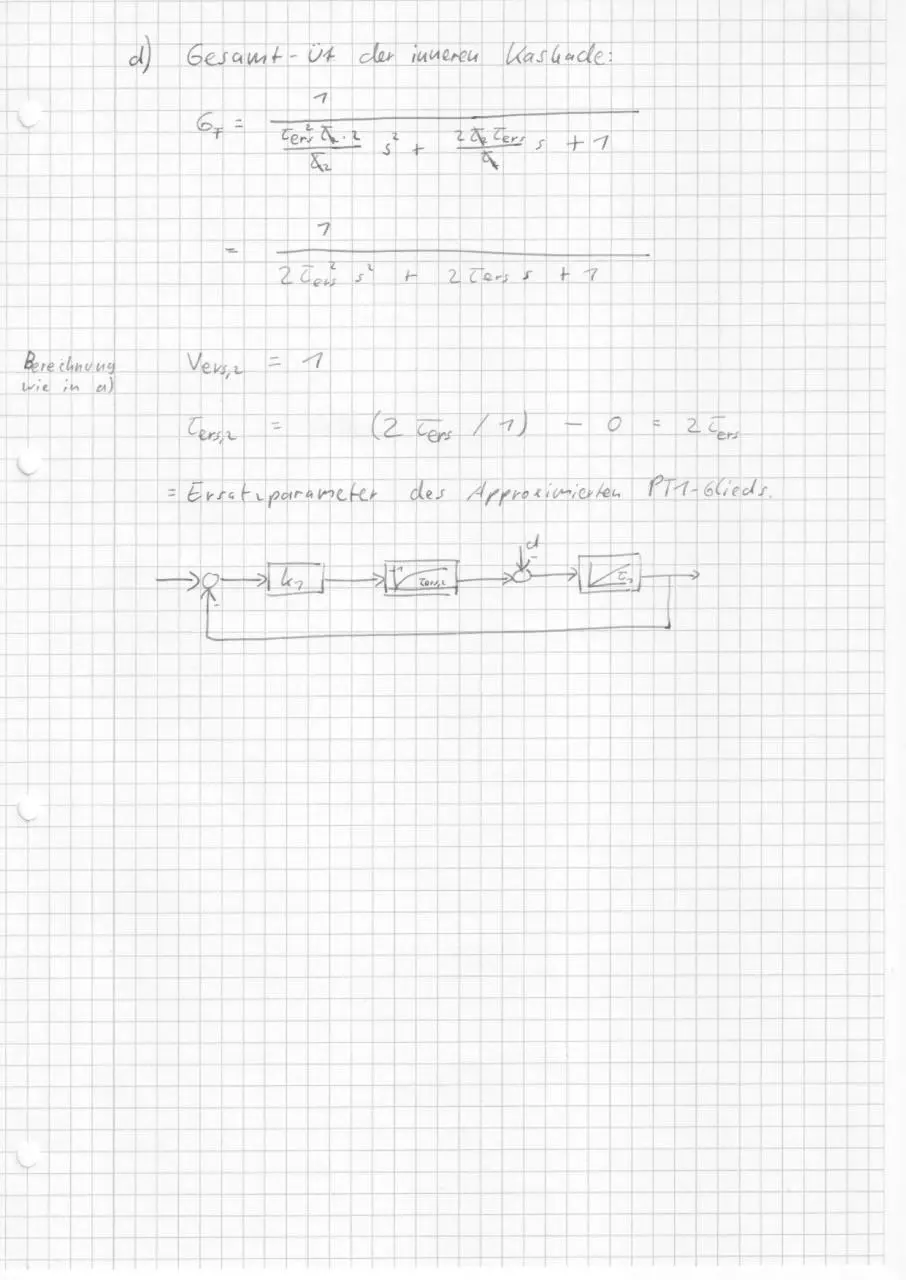 d) Gesamt-ÜF der inneren Kaskade:
G_F = 1 / ( (τ_ers² τ_2 · 2)/τ_2 s² + (2 τ_2 τ_ers)/τ_2 s + 1 )
= 1 / ( 2 τ_ers² s² + 2 τ_ers s + 1 )
Berechnung
wie in a)
V_ers,2 = 1
τ_ers,2 = (2 τ_ers / 1) - 0 = 2 τ_ers
= Ersatzparameter des Approximierten PT1-Glieds.
d
-
k_1
1
τ_ers,2
τ_1
-